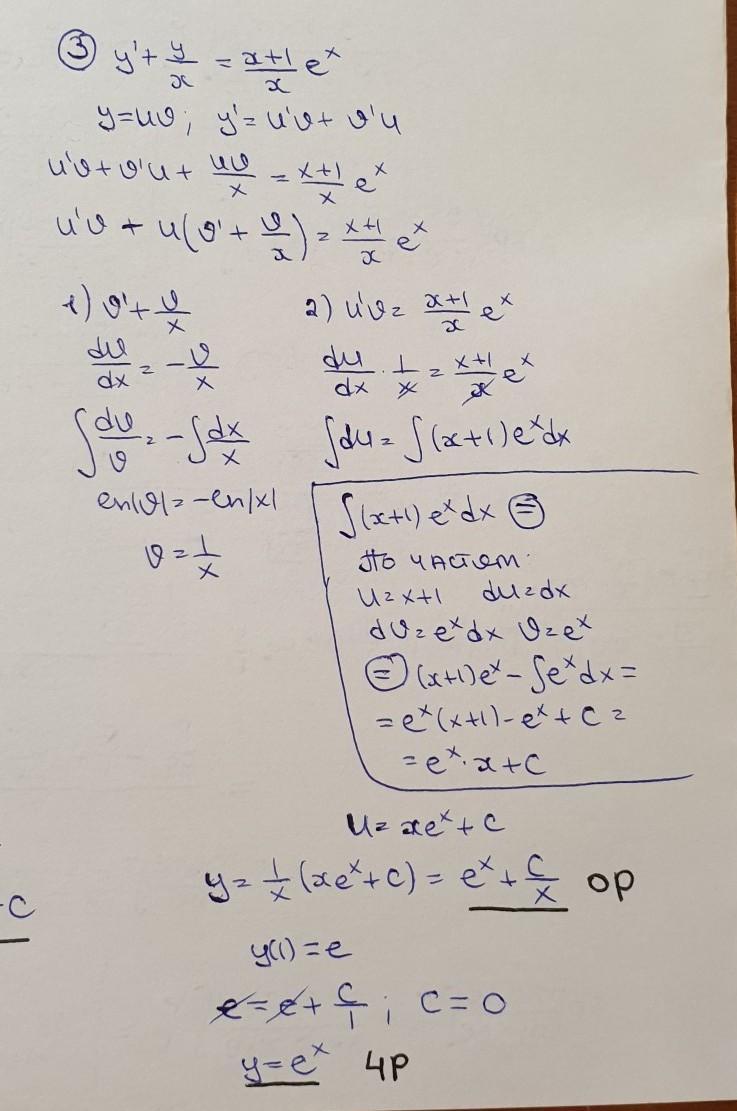 ③ y' + y/x = x+1/x e^x
y=uv; y'= u'v + v'u
u'v+v'u + uv/x = x+1/x e^x
u'v + u(v' + v/x) = x+1/x e^x
1) v' + v/x
dv/dx = -v/x
∫ dv/v = -∫ dx/x
ln|v| = -ln|x|
v = 1/x
2) u'v = x+1/x e^x
du/dx · 1/x = x+1/x e^x
∫du = ∫(x+1)e^x dx
∫(x+1) e^x dx ⊜
По частям:
u = x+1 du = dx
dv = e^x dx v = e^x
⊜ (x+1)e^x - ∫e^x dx =
= e^x(x+1) - e^x + C =
= e^x · x + C
u = xe^x + C
y = 1/x (xe^x + C) = e^x + C/x ОР
-C
y(1) = e
e = e + C/1; C = 0
y = e^x ЧР